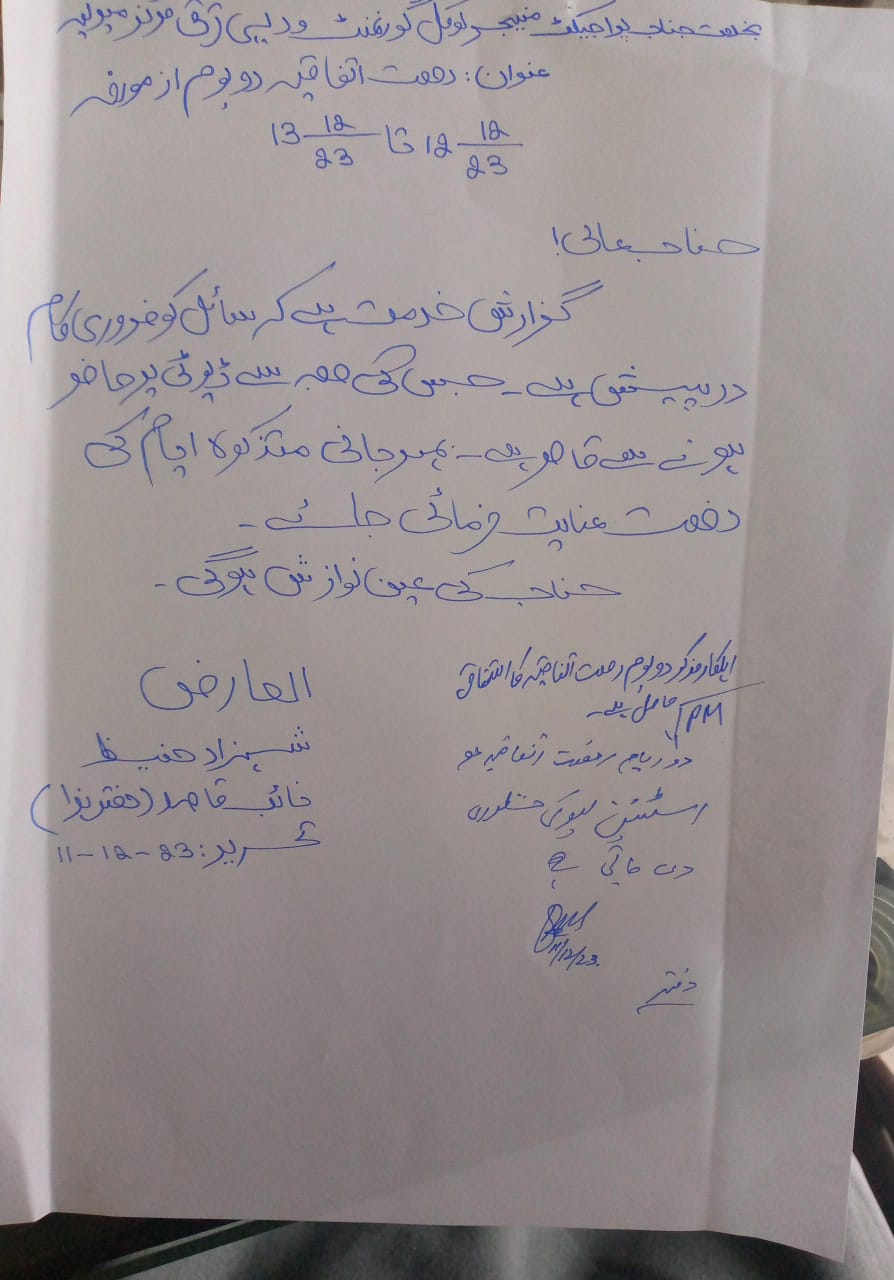 بخدمت جناب پراجیکٹ منیجر لوکل گورنمنٹ و دیہی ترقی مرکز
عنوان: رخصت اتفاقیہ دو یوم از مورخہ
12 12/23 تا 13 12/23
جناب عالی!
گزارش خدمت ہے کہ سائل کو ضروری کام
درپیش ہے۔ جس کی وجہ سے ڈیوٹی پر حاضر
ہونے سے قاصر ہے۔ مہربانی متذکرہ ایام کی
رخصت عنایت فرمائی جائے۔
جناب کی عین نوازش ہوگی۔
العارض
شہزاد حفیظ
نائب قاصد (دفتر ہذا)
تحریر: 11-12-23
اہلکار مذکور دو یوم رخصت اتفاقیہ کا استحقاق
حاصل ہے۔
PM
دو ایام رخصت اتفاقیہ
کی منظوری
دی جاتی ہے
11/12/23.
دفتر